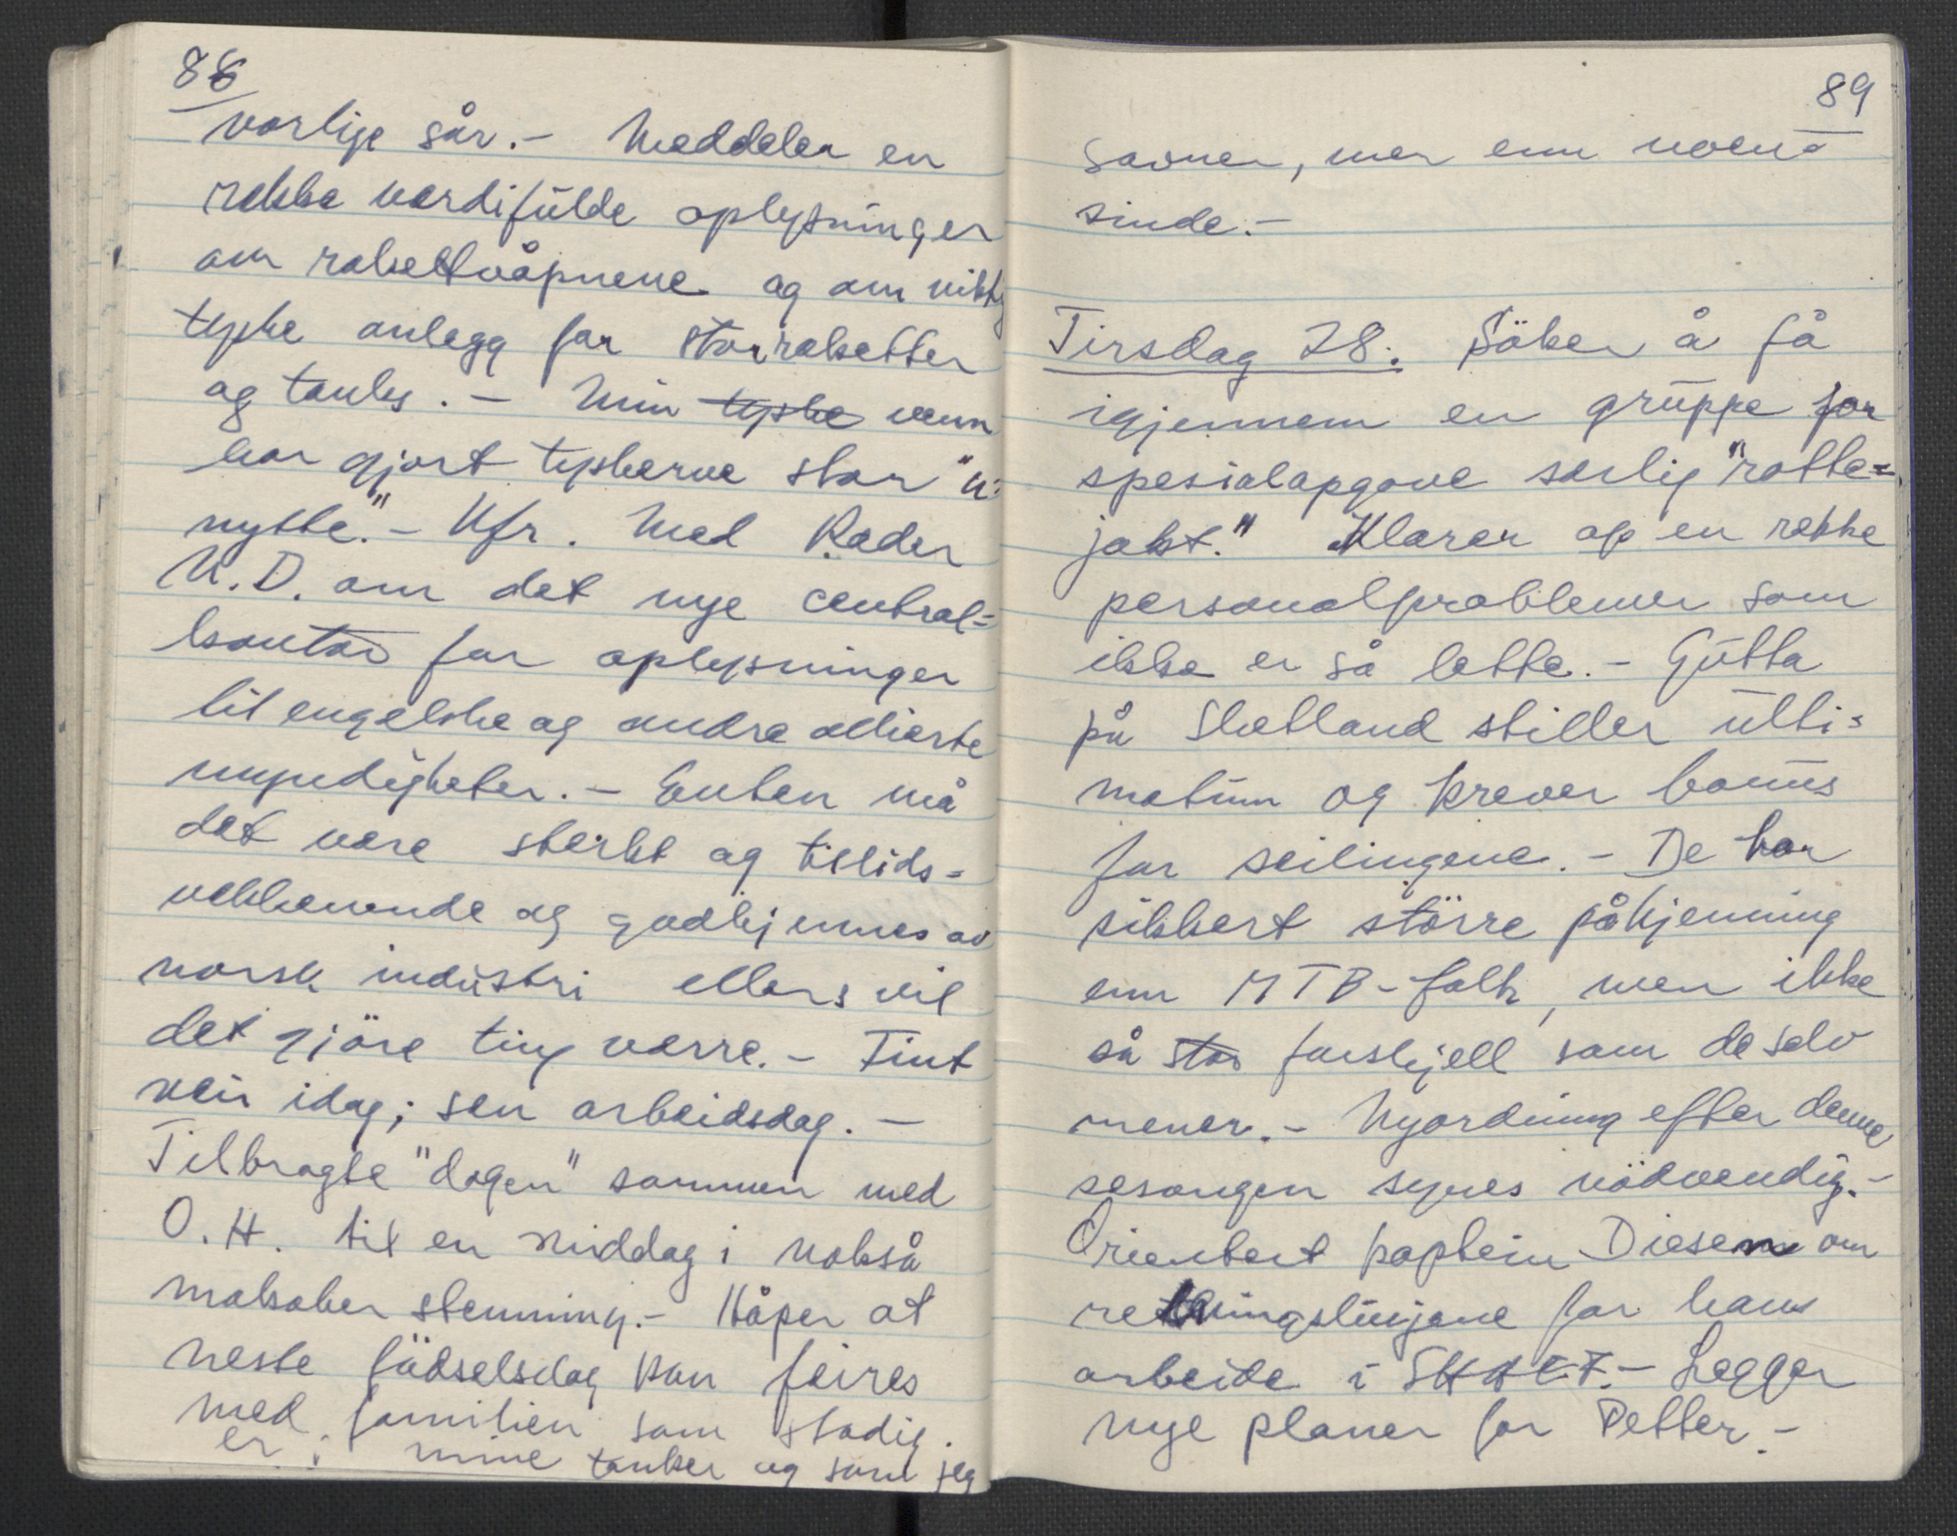 88
vorlige sår. - Meddeler en
rekke verdifulde oplysninger
om rakettvåpnene og om viktig
tyske anlegg for storraketter
og tanks. - Min tyske venn
har gjort tyskerne stor "u=
nytte." - Kfr. med Ræder
U.D. om det nye central=
kontor for oplysninger
til engelske og andre allierte
myndigheter. - Enten må
det være sterkt og tillids=
vekkenende og godkjennes av
norsk industri ellers vil
det gjöre ting værre. - Fint
veir idag; sen arbeidsdag. -
Tilbragte "dagen" sammen med
O.H. til en middag i nokså
makaber stemning. - Håper at
neste födselsdag kan feires
med familien som stadig
er i mine tanker og som jeg
89
savner, mer enn noen=
sinde. -
Tirsdag 28. Söker å få
igjennem en gruppe for
spesialopgave særlig "rotte=
jakt." Klarer op en rekke
personalproblemer som
ikke er så lette. - Gutta
på Shetland stiller ulti=
matum og krever bonus
for seilingene. - De har
sikkert större påkjenning
enn MTB-folk, men ikke
så stor forskjell som de selv
mener. - Nyordning efter denne
sesongen synes nödvendig. -
Orientert kaptein Diesen om
retningslinjene for hans
arbeide i SHAEF. - Legger
nye planer for Petter. -